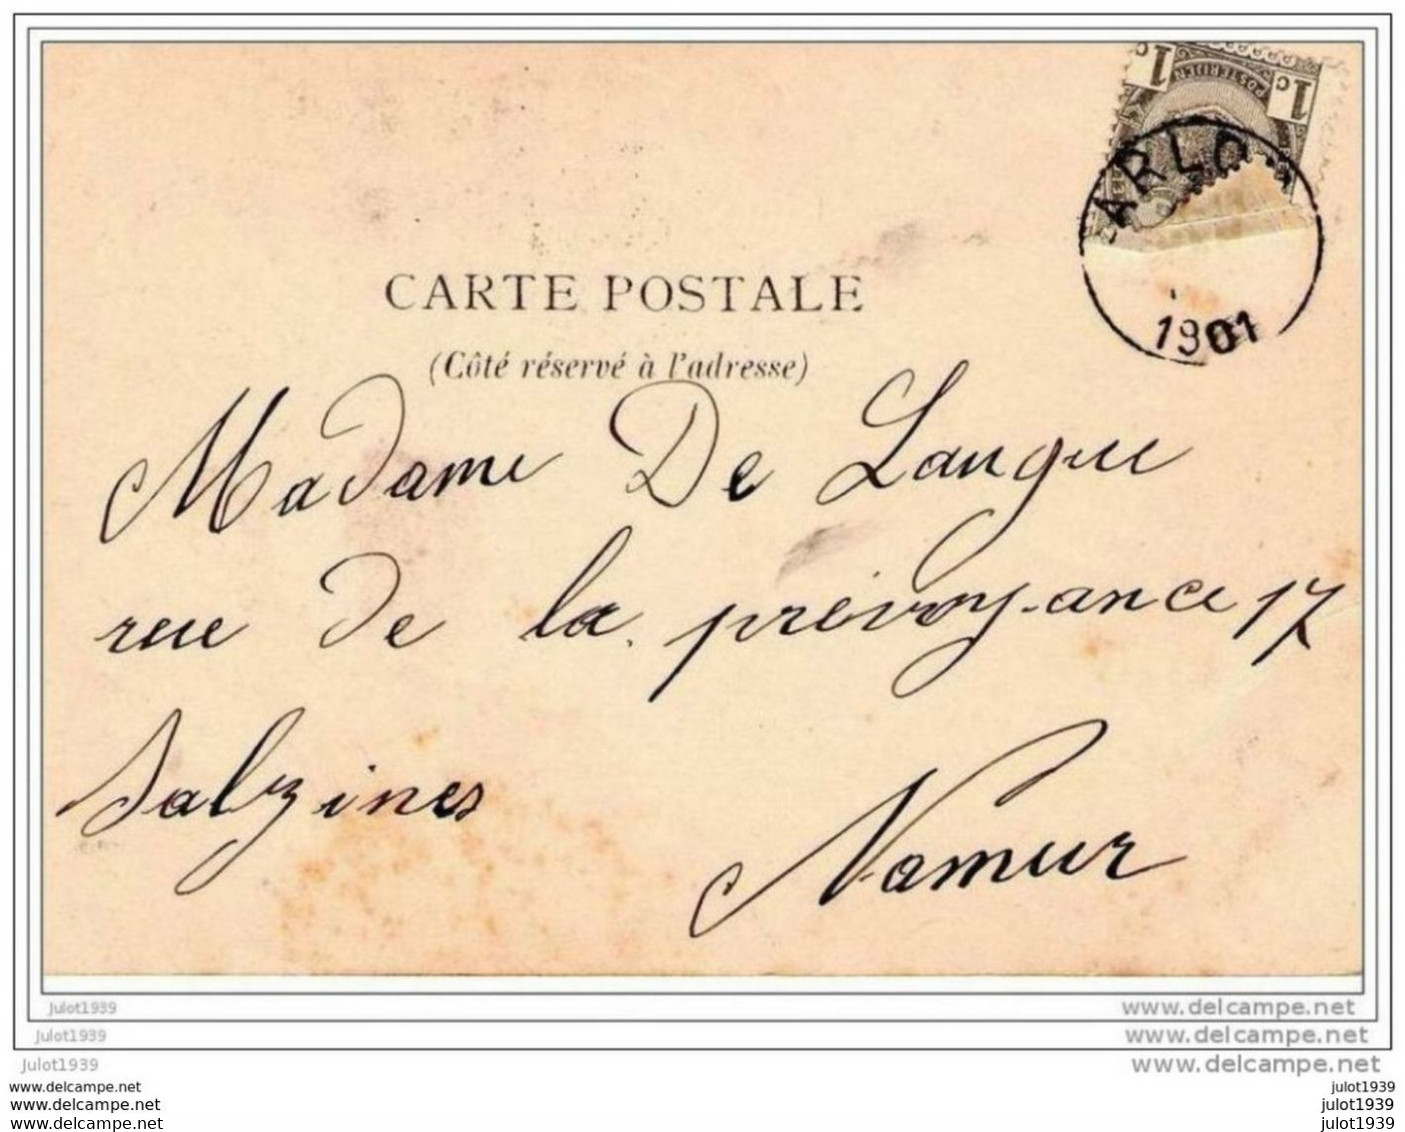 1c
POSTERIJEN
1c
ARLO
1901
CARTE POSTALE
(Côté réservé à l'adresse)
Madame De Langue
rue de la prévoyance 17
Salzines
Namur
julot1939 www.delcampe.net
julot1939 www.delcampe.net
julot1939 www.delcampe.net
www.delcampe.net julot1939
www.delcampe.net julot1939
www.delcampe.net julot1939